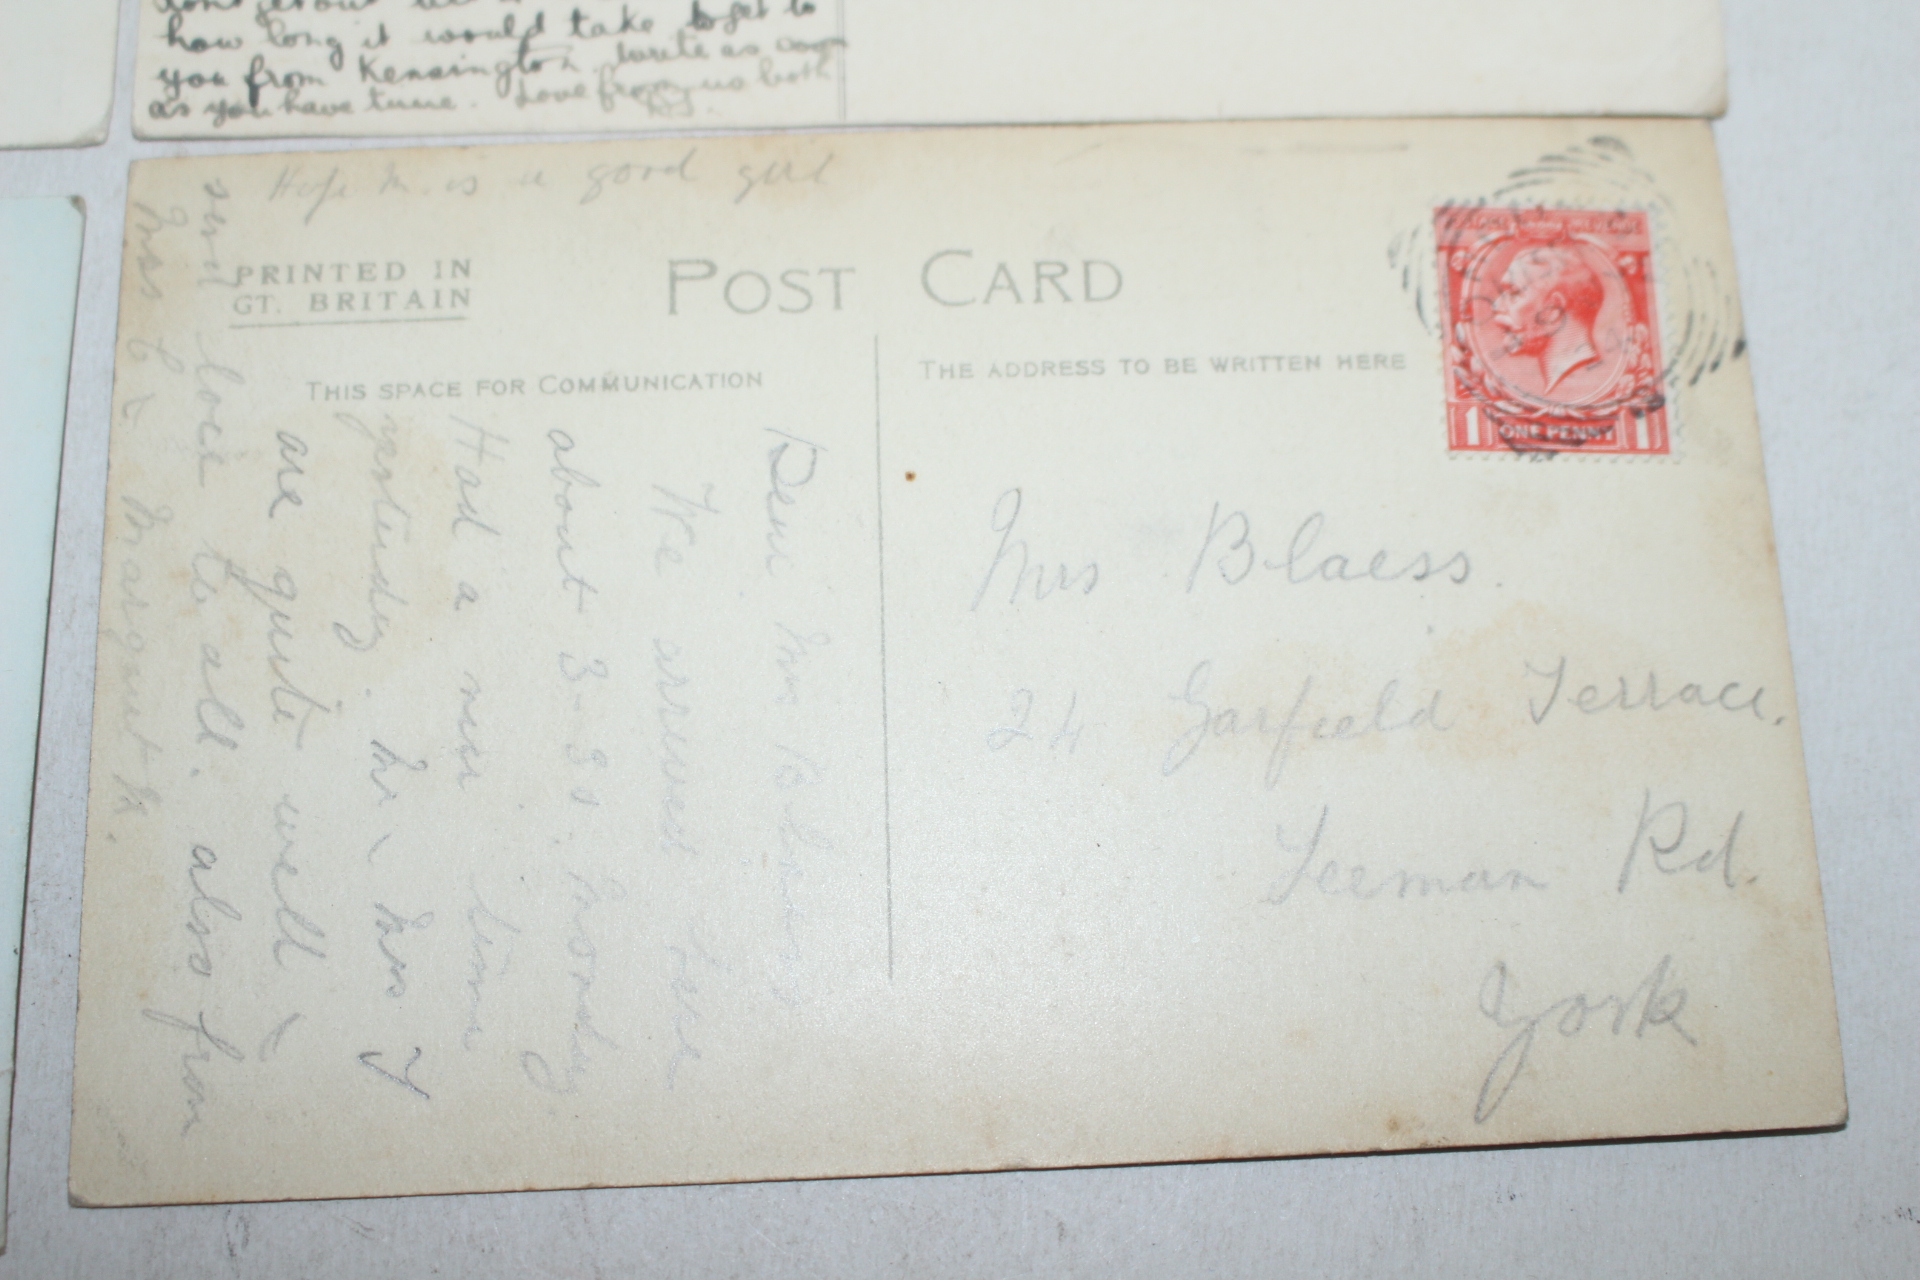 how long it would take to get to
you from Kensington. Write as soon
as you have time. Love from us both
Hope M. is a good girl
PRINTED IN
GT. BRITAIN
POST CARD
THIS SPACE FOR COMMUNICATION
THE ADDRESS TO BE WRITTEN HERE
ONE PENNY
1 1
Dear Mrs Blaess
We arrived here
about 3-30. Monday.
Had a nice time
yesterday. Mr & Mrs Y
are quite well &
send love to all. also from
Mrs C & Margaret K.
Mrs Blaess.
24 Garfield Terrace.
Leeman Rd.
York